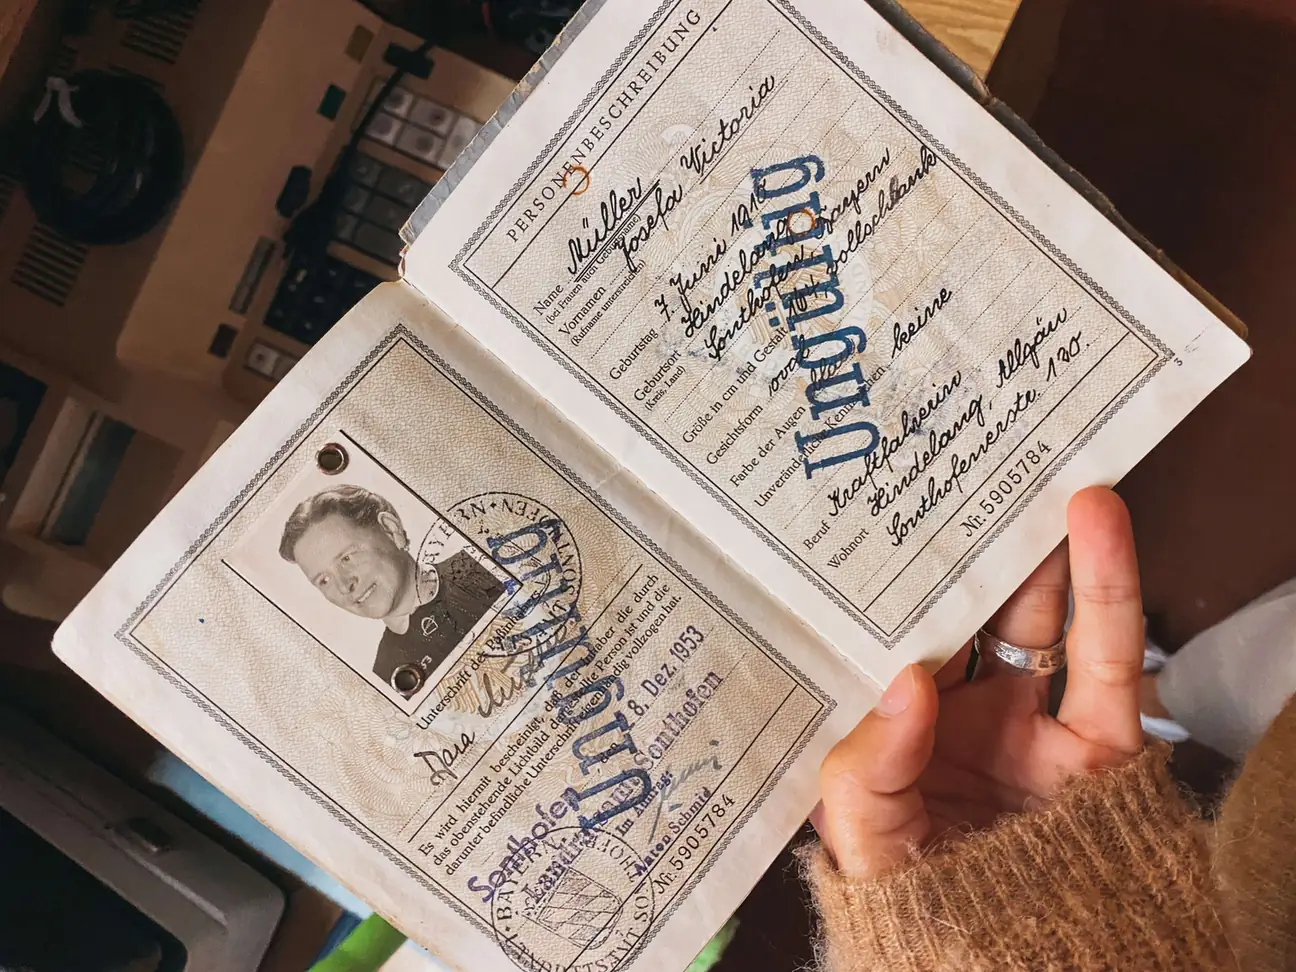 PERSONENBESCHREIBUNG
Name Müller
(bei Frauen auch Geburtsname)
Vornamen Josefa Victoria
(Rufname unterstreichen)
Geburtstag 7. Juni 1910
Geburtsort Hindelang
(Kreis, Land) Sonthofen, Bayern
Größe in cm und Gestalt vollschlank
Gesichtsform oval
Farbe der Augen
Unveränderliche Kennzeichen keine
Beruf Kraftfahrerin
Wohnort Hindelang, Allgäu
Sonthofenerstr. 130.
Nr. 5905784
3
Ungültig
Unterschrift des Paßinhabers
Es wird hiermit bescheinigt, daß der Inhaber die durch
das obenstehende Lichtbild dargestellte Person ist und die
darunter befindliche Unterschrift eigenhändig vollzogen hat.
Sonthofen, den 8. Dez. 1953
Landratsamt Sonthofen
Anton Schmid
Nr. 5905784
Ungültig